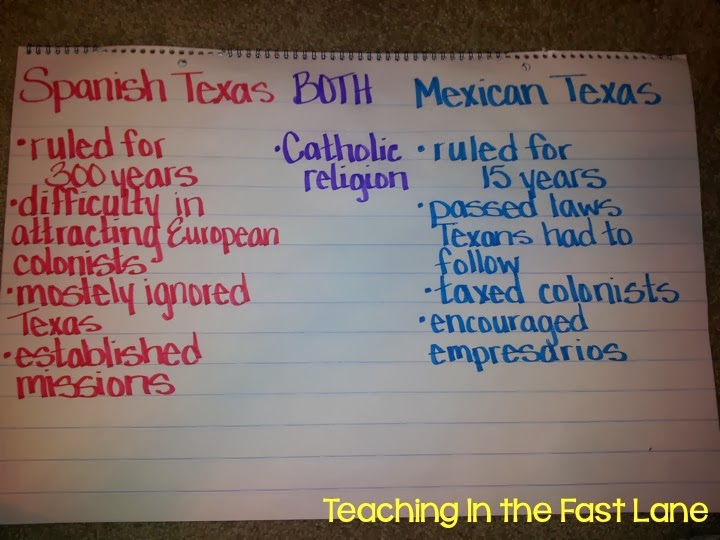 Spanish Texas
•ruled for
300 years
•difficulty in
attracting European
colonists
•mostely ignored
Texas
•established
missions
BOTH
•Catholic
religion
Mexican Texas
•ruled for
15 years
•passed laws
Texans had to
follow
•taxed colonists
•encouraged
empresarios
Teaching In the Fast Lane